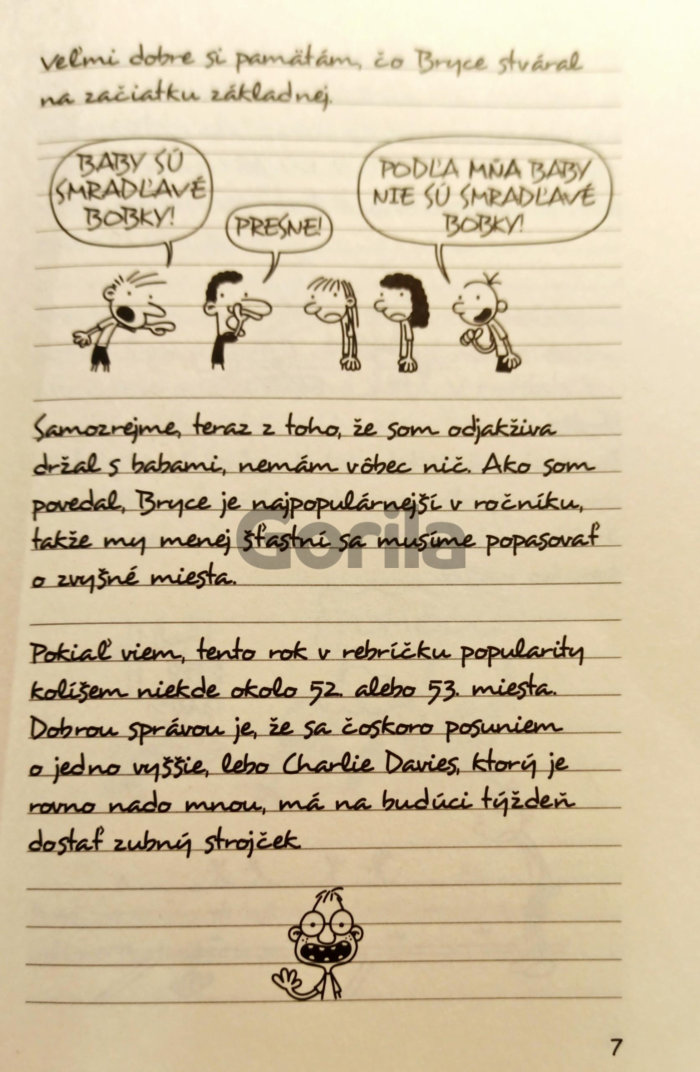 veľmi dobre si pamätám, čo Bryce stváral
na začiatku základnej.
BABY SÚ
SMRADĽAVÉ
BOBKY!
PRESNE!
PODĽA MŇA BABY
NIE SÚ SMRADĽAVÉ
BOBKY!
Samozrejme, teraz z toho, že som odjakživa
držal s babami, nemám vôbec nič. Ako som
povedal, Bryce je najpopulárnejší v ročníku,
takže my menej šťastní sa musíme popasovať
o zvyšné miesta.
Gorila
Pokiaľ viem, tento rok v rebríčku popularity
kolíšem niekde okolo 52. alebo 53. miesta.
Dobrou správou je, že sa čoskoro posuniem
o jedno vyššie, lebo Charlie Davies, ktorý je
rovno nado mnou, má na budúci týždeň
dostať zubný strojček.
7